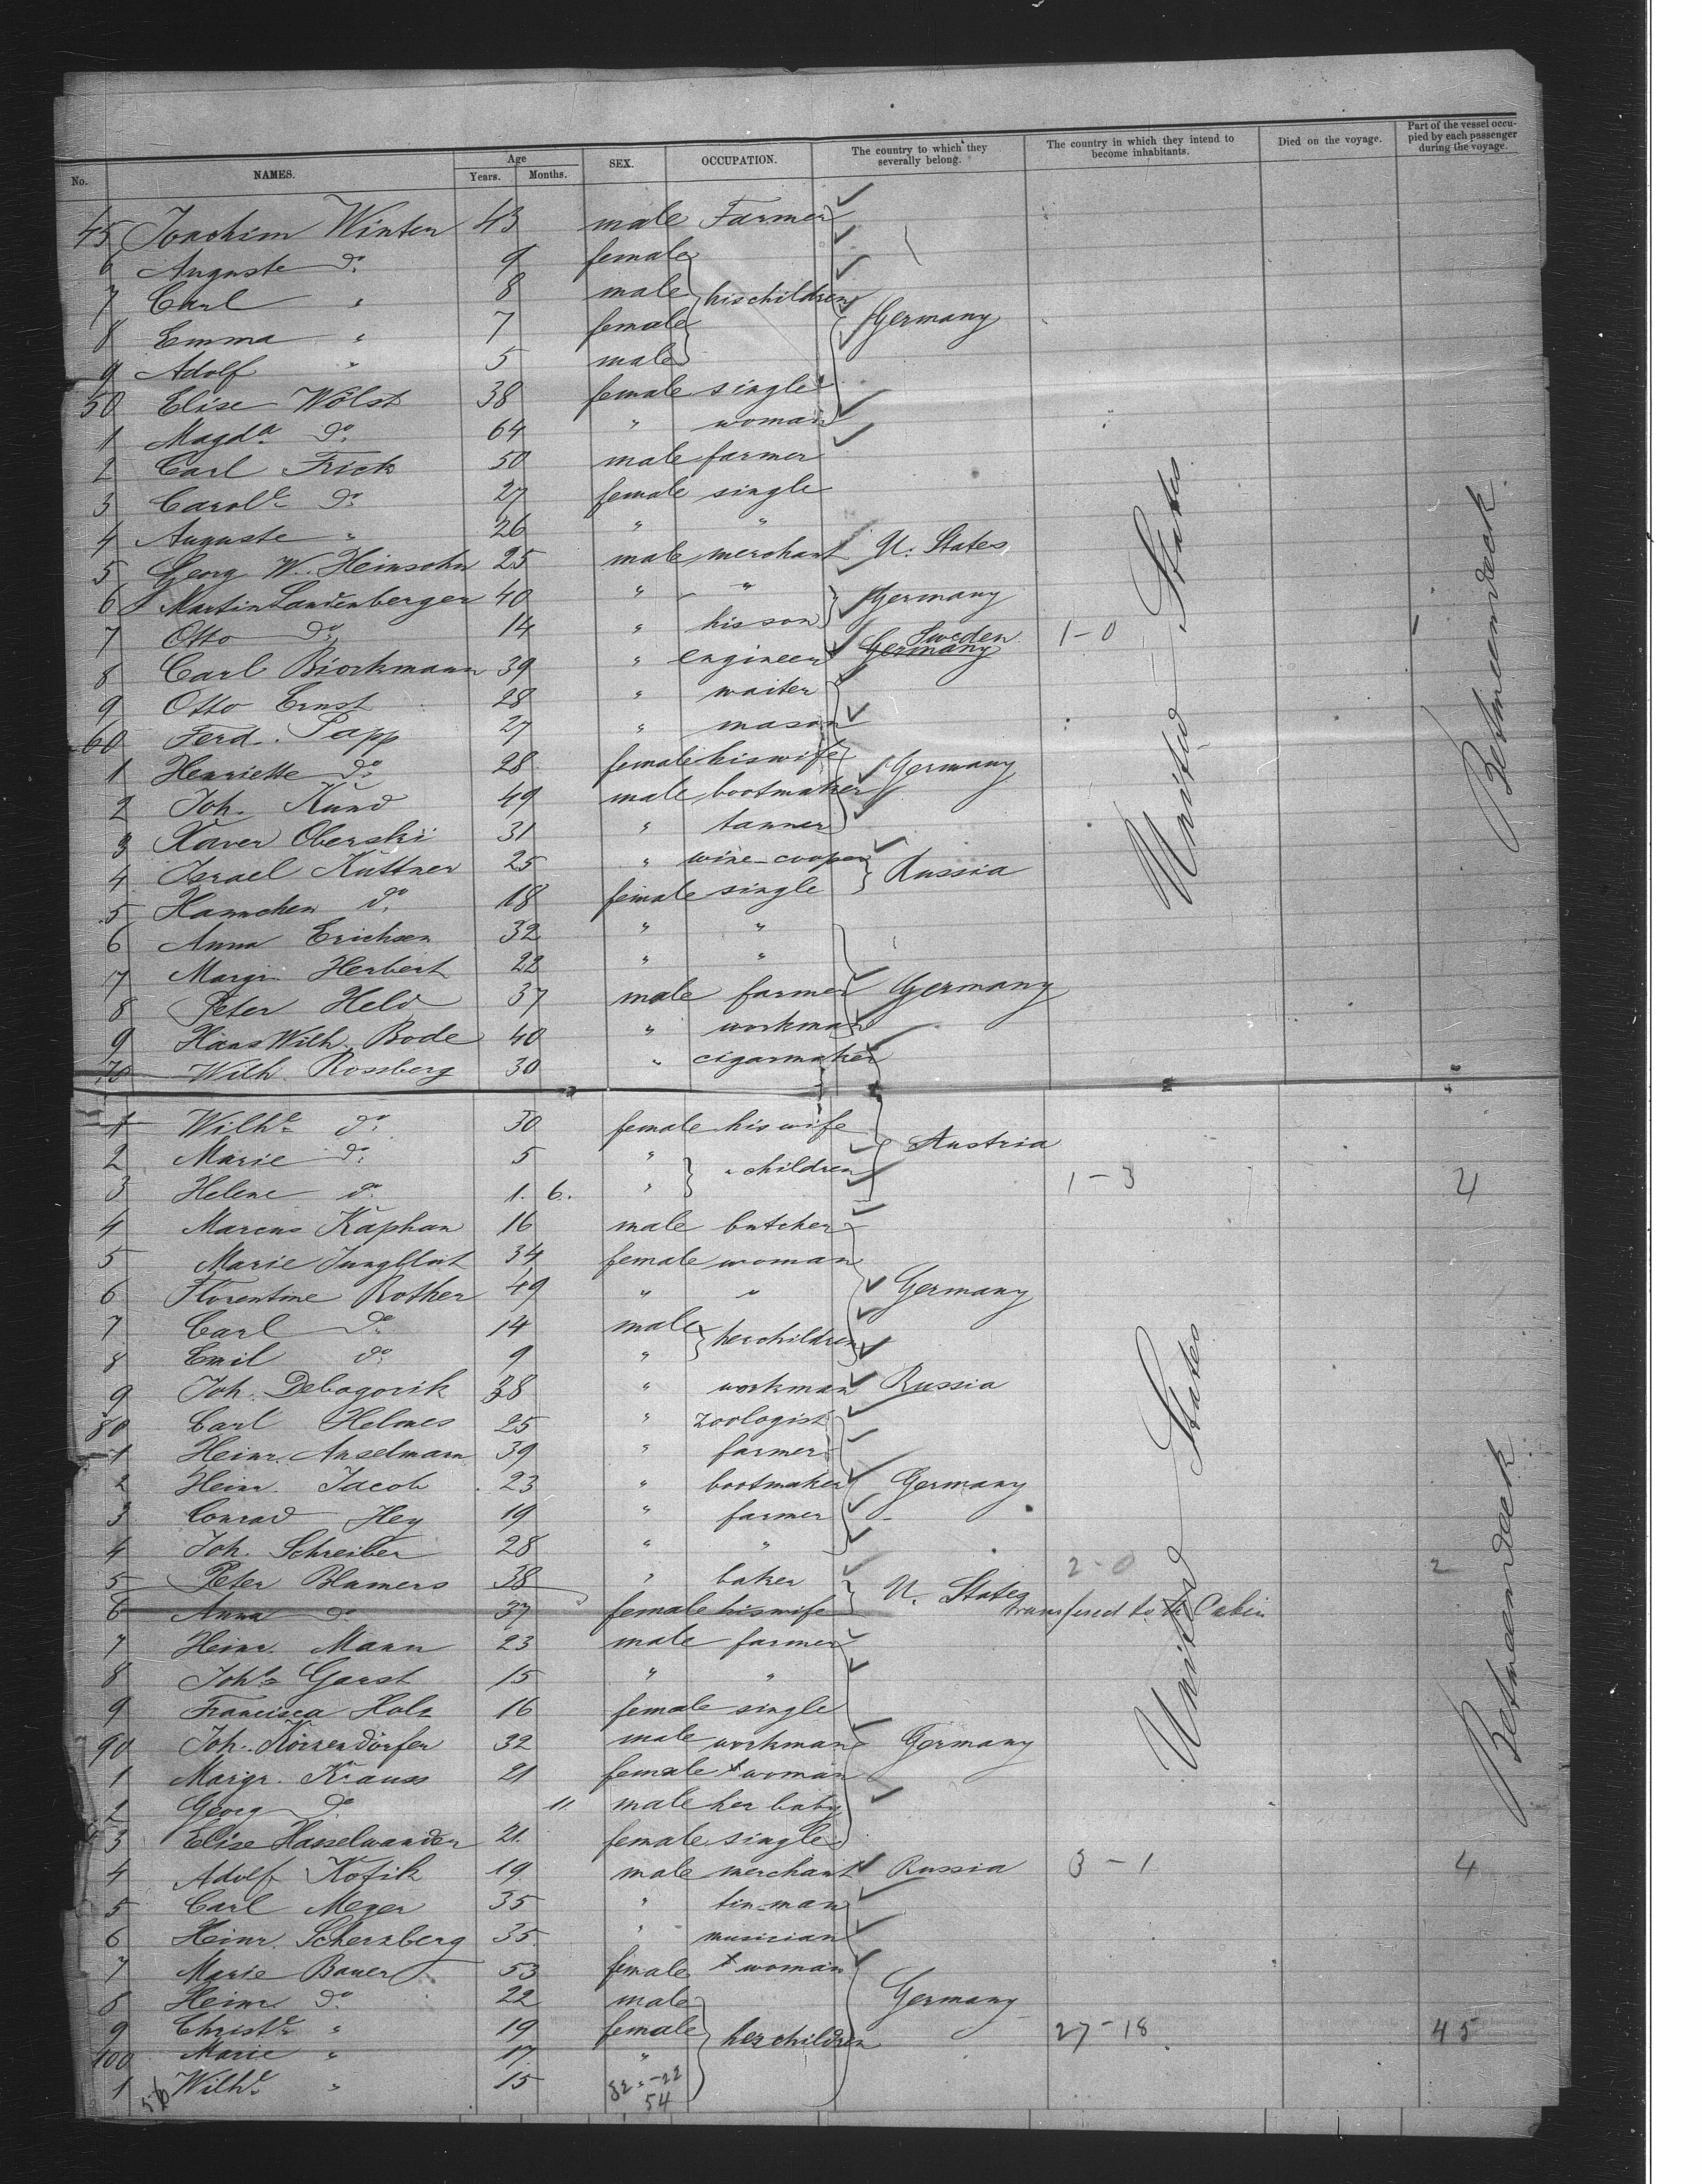 No. NAMES. Age Years. Months. SEX. OCCUPATION. The country to which they severally belong. The country in which they intend to become inhabitants. Died on the voyage. Part of the vessel occupied by each passenger during the voyage.
45 Joachim Winter 43 male Farmer
6 Auguste do 9 female
7 Carl " 8 male his children
8 Emma " 7 female Germany
9 Adolf " 5 male
50 Elise Wölst 38 female single
1 Magda do 64 " woman
2 Carl Frick 50 male farmer
3 Carole do 27 female single
4 Auguste " 26 " "
5 Georg W. Heinsohn 25 male merchant U. States
6 Martin Landenberger 40 " " Germany
7 Otto do 14 " his son Sweden 1-0 1
8 Carl Biorkmann 39 " engineer Germany
9 Otto Ernst 28 " waiter
60 Ferd. Papp 27 " mason
1 Henriette do 28 female his wife Germany
2 Joh. Kund 49 male bootmaker
3 Xaver Oberski 31 " tanner
4 Israel Kuttner 25 " wine-cooper Russia
5 Hannchen do 18 female single
6 Anna Erichsen 32 " "
7 Margr. Herbert 22 " "
8 Peter Held 37 male farmer Germany
9 Hans Wilh. Bode 40 " workman
70 Wilh. Rossberg 30 " cigarmaker
United States
Betweendeck
1 Wilhe do 30 female his wife Austria
2 Marie do 5 " " children
3 Helene do 1. 6. " 1-3 4
4 Marcus Kaphan 16 male butcher
5 Marie Jungblut 34 female woman
6 Florentine Rother 49 " " Germany
7 Carl do 14 male her children
8 Emil do 9 "
9 Joh. Debagorik 38 " workman Russia
80 Carl Helmes 25 " zoologist
1 Heinr. Anselmann 39 " farmer
2 Heinr. Jacob 23 " bootmaker Germany
3 Conrad Hey 19 " farmer
4 Joh. Schreiber 28 " "
5 Peter Blamers 38 " baker U. States 2-0 2
6 Anna do 37 female his wife transfered to the Cabin
7 Heinr. Mann 23 male farmer
8 Johs Garst 15 " "
9 Francisca Holz 16 female single
90 Joh. Körzendörfer 32 male workman Germany
1 Margr. Krauss 21 female woman
2 Georg do 11. male her baby
3 Elise Hasselwander 21. female single
4 Adolf Kofik 19 male merchant Russia 3-1 4
5 Carl Meyer 35 " tin-man
6 Heinr. Scherzberg 35. " musician
7 Marie Bauer 53 female woman
8 Heinr. do 22 male Germany
9 Christe " 19 female her children 27-18 45
100 Marie " 17. "
1 Wilhe " 15
32-22
54
United States
Betweendeck